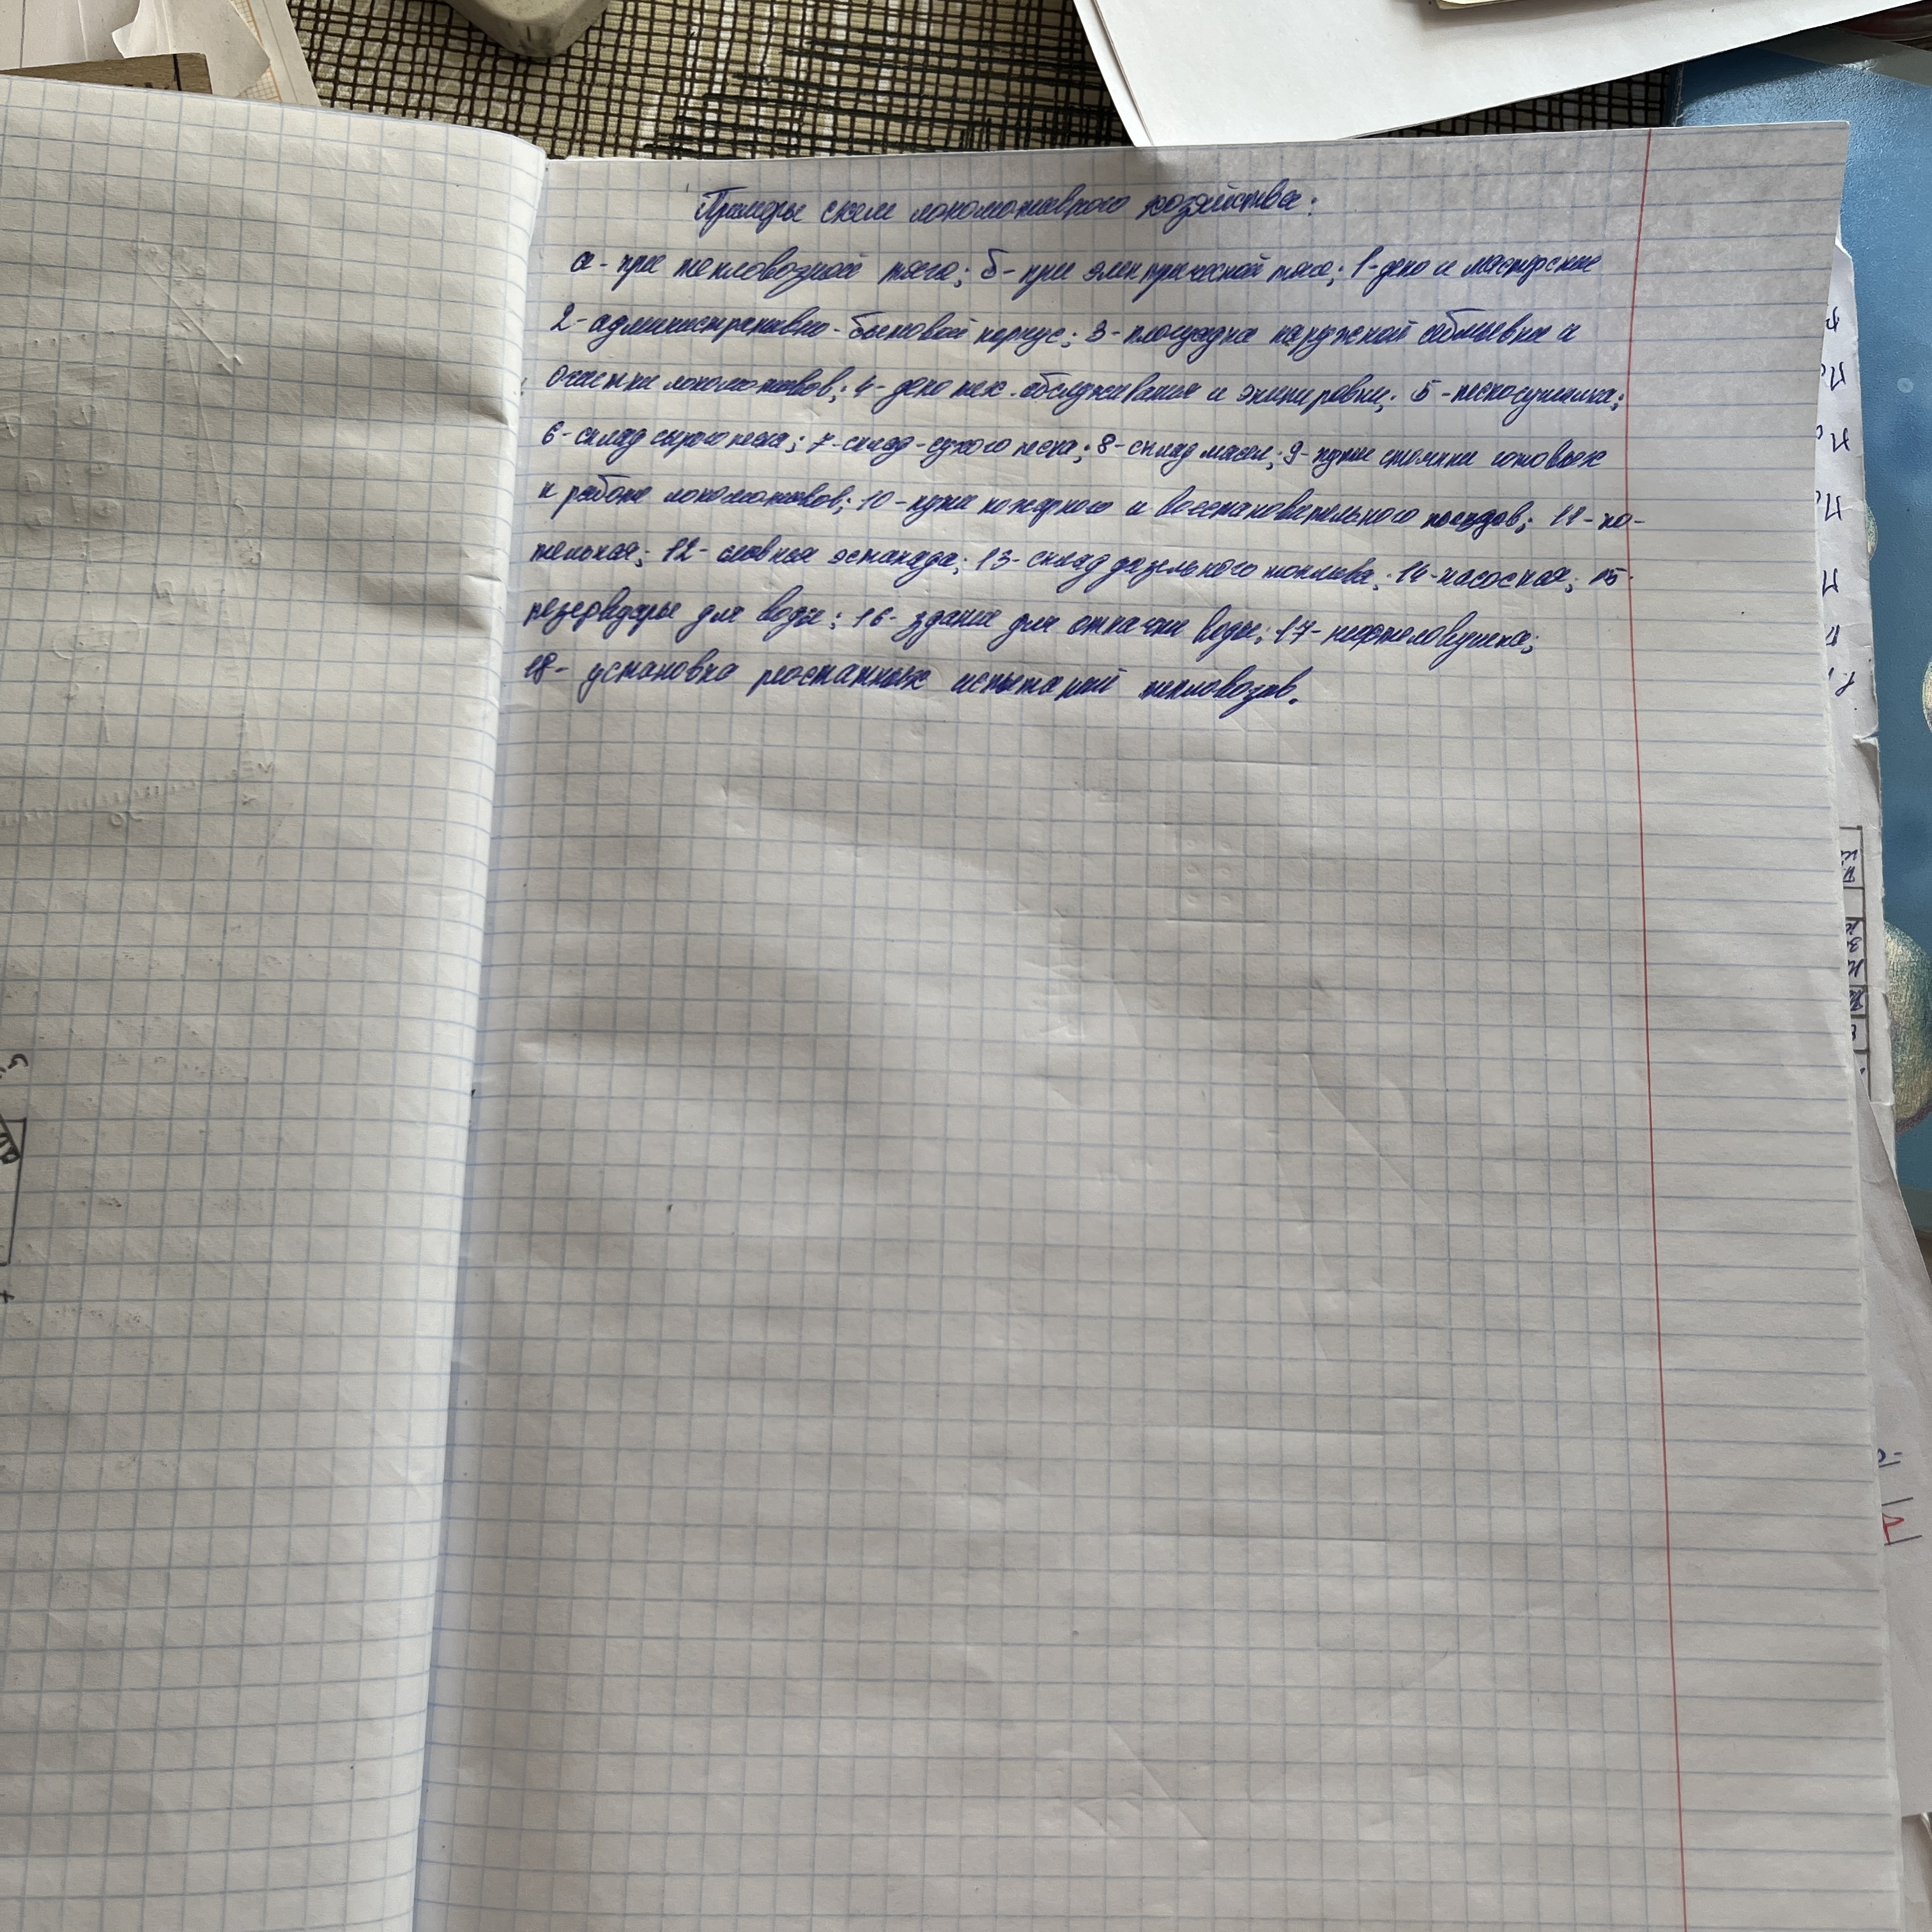 Примеры схем локомотивного хозяйства:
а - при тепловозной тяге; б - при электрической тяге; 1 - депо и мастерские
2 - административно - бытовой корпус; 3 - площадка наружной обмывки и
очистки локомотивов; 4 - депо тех. обслуживания и экипировки; 5 - пескосушилка;
6 - склад сырого песка; 7 - склад - сухого песка; 8 - склад масел; 9 - пути стоянки готовых
к работе локомотивов; 10 - пути пожарного и восстановительного поездов; 11 - ко-
тельная; 12 - сливная эстакада; 13 - склад дизельного топлива; 14 - насосная; 15 -
резервуары для воды; 16 - здание для откачки воды; 17 - нефтеловушка;
18 - установка реостатных испытаний тепловозов.